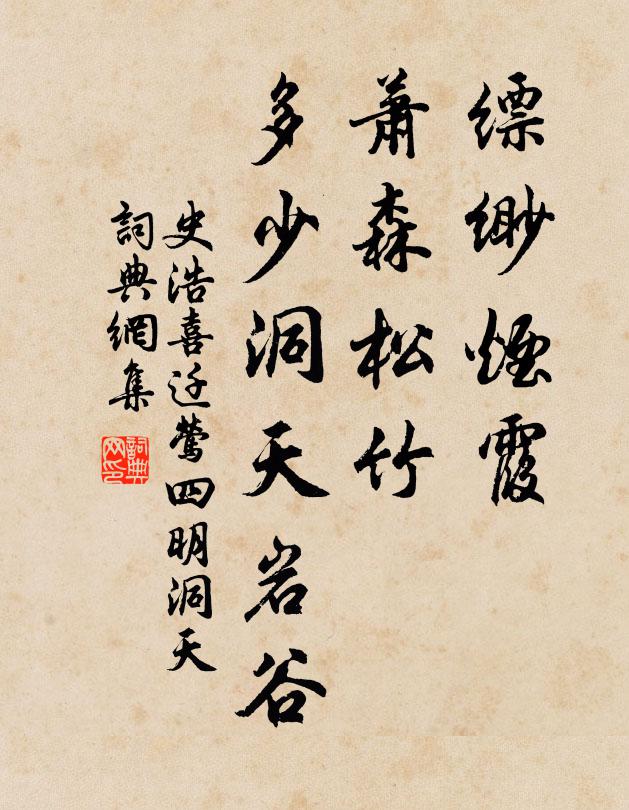 縹緲煙霞
蕭森松竹
多少洞天岩谷
史浩喜迁鶯四明洞天
詞典網集
詞典
网印